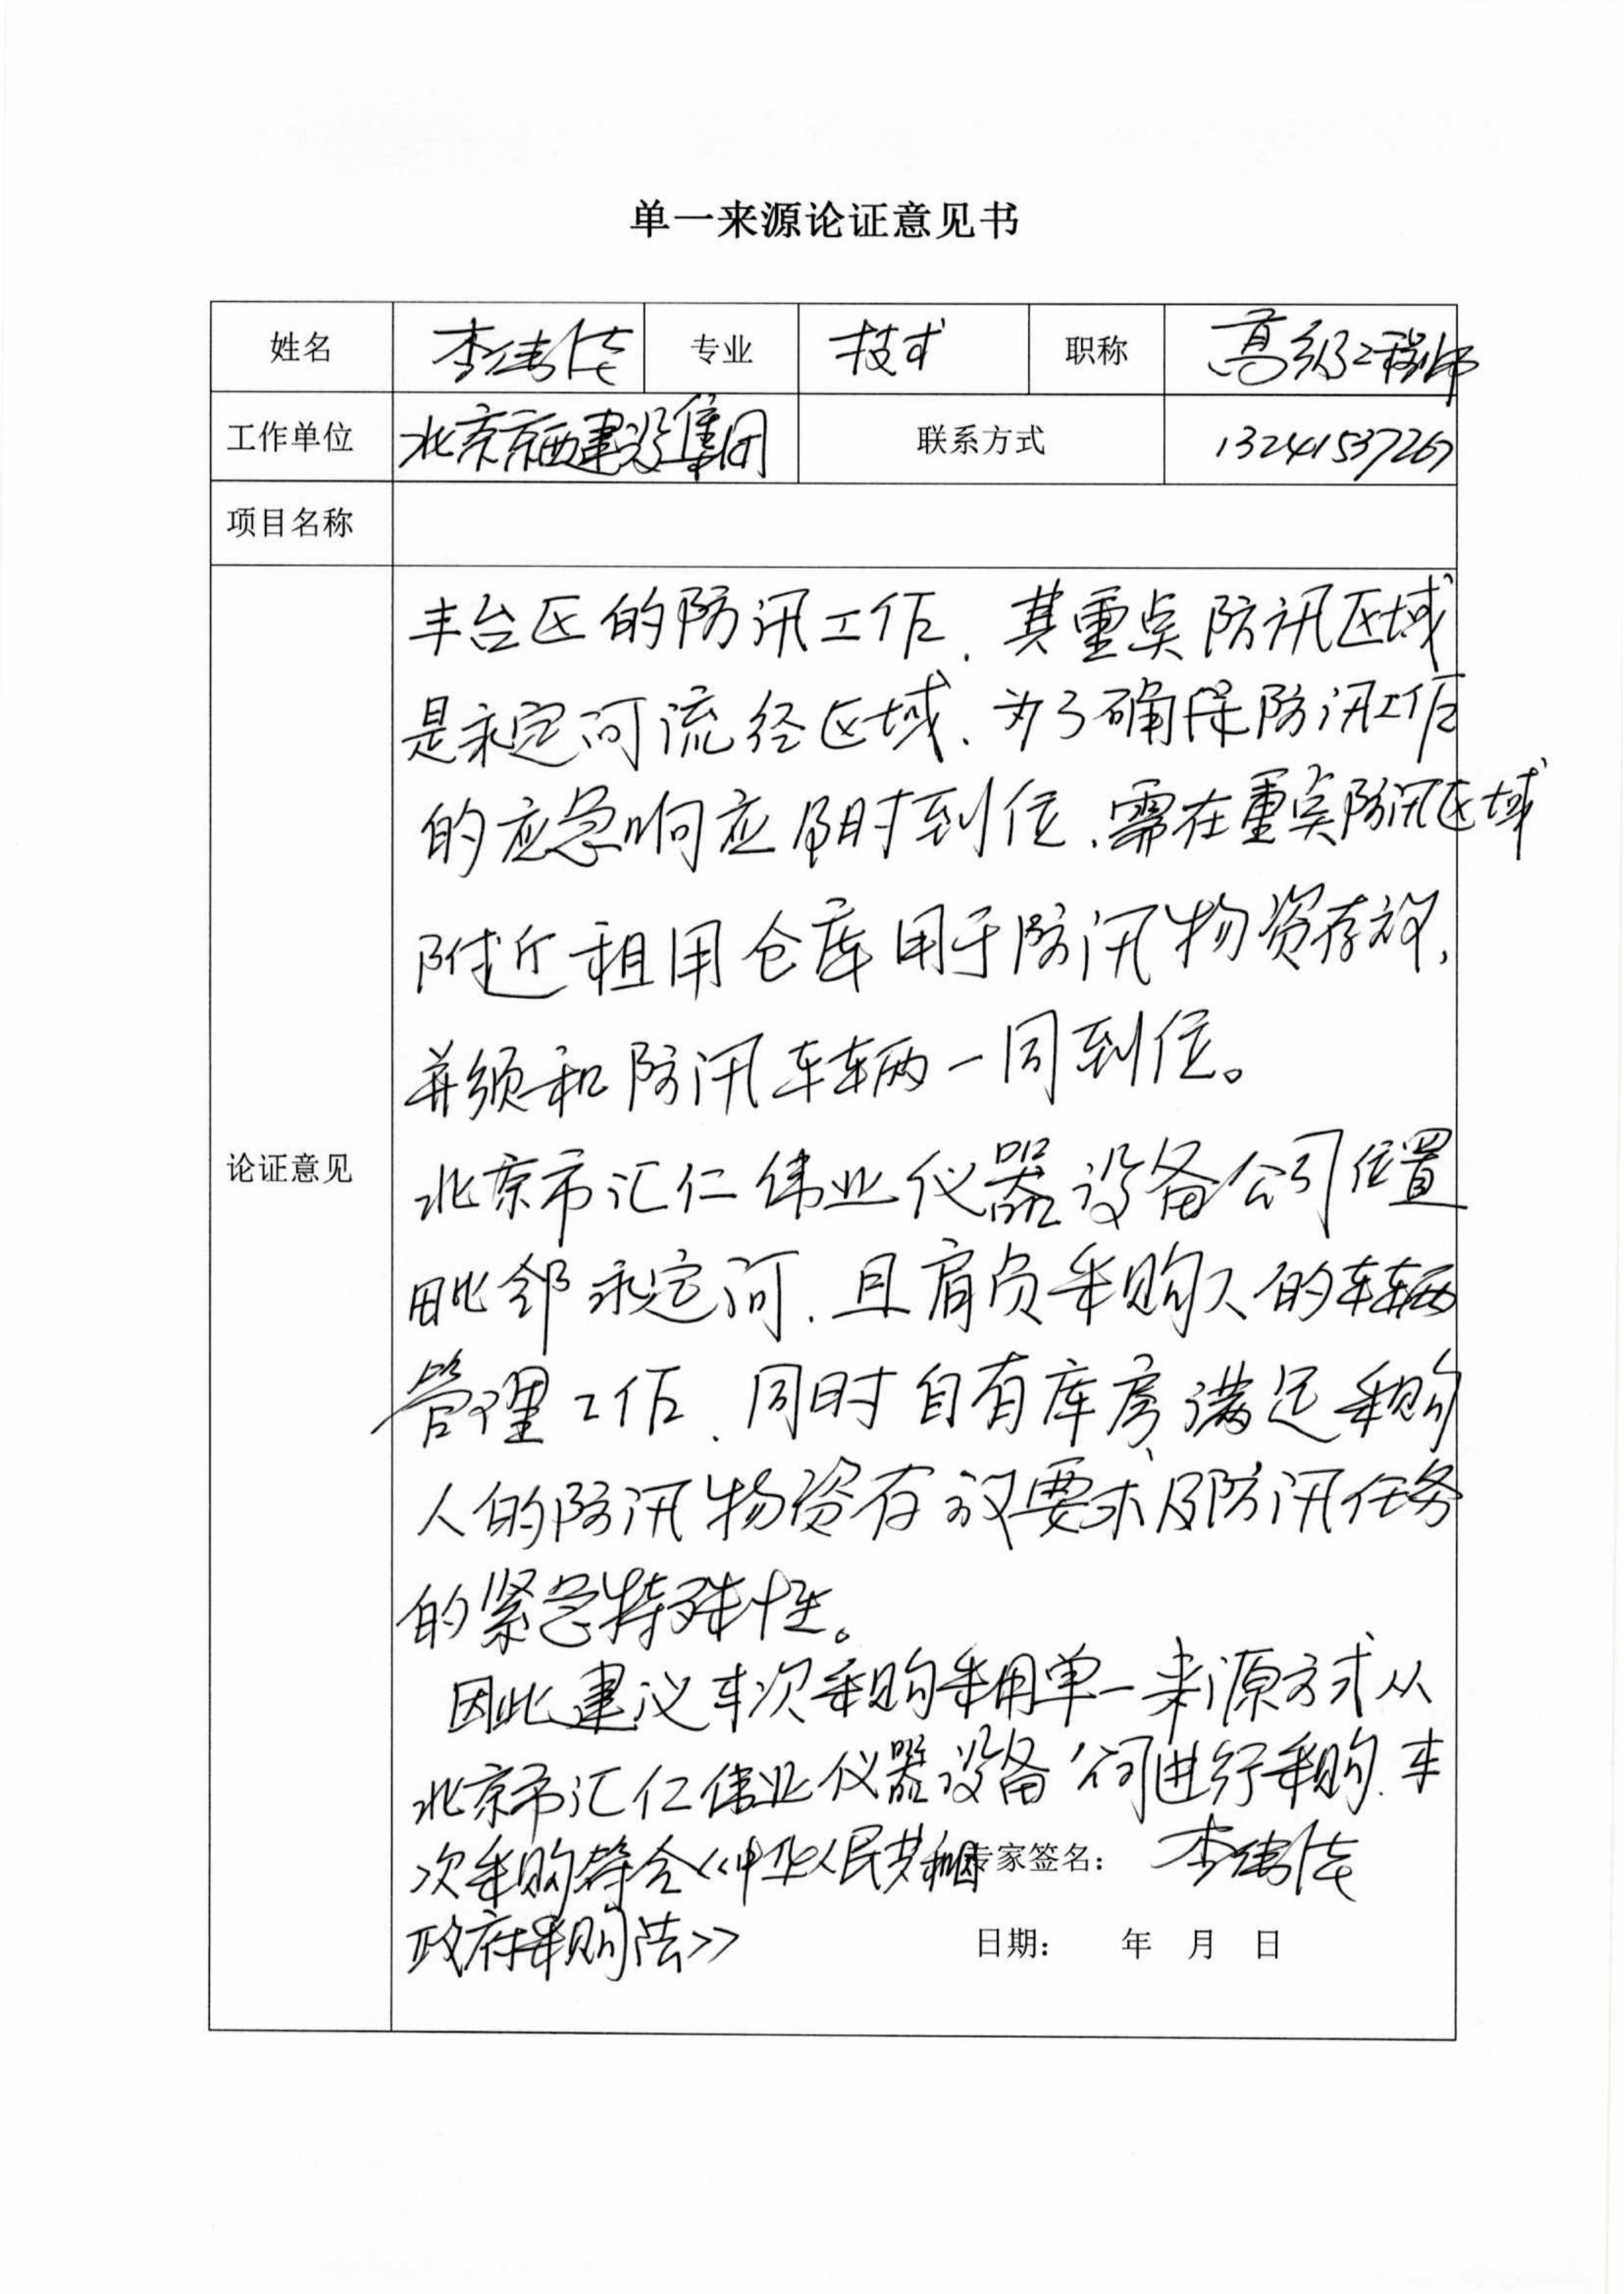 单一来源论证意见书
姓名 李 专业 技术 职称 高级工程师
工作单位 北京京西建设集团 联系方式 13241537267
项目名称
论证意见
丰台区的防汛工作、其重点防汛区域
是永定河流经区域、为了确保防汛工作
的应急响应及时到位、需在重点防汛区域
附近租用仓库用于防汛物资存放,
并须和防汛车辆一同到位。
北京市汇仁伟业仪器设备公司位置
毗邻永定河、且肩负采购人的车辆
管理工作、同时自有库房满足采购
人的防汛物资存放要求及防汛任务
的紧急特殊性。
因此建议本次采购采用单一来源方式从
北京市汇仁伟业仪器设备公司进行采购、本
次采购符合《中华人民共和国
专家签名: 李
政府采购法》
日期: 年 月 日